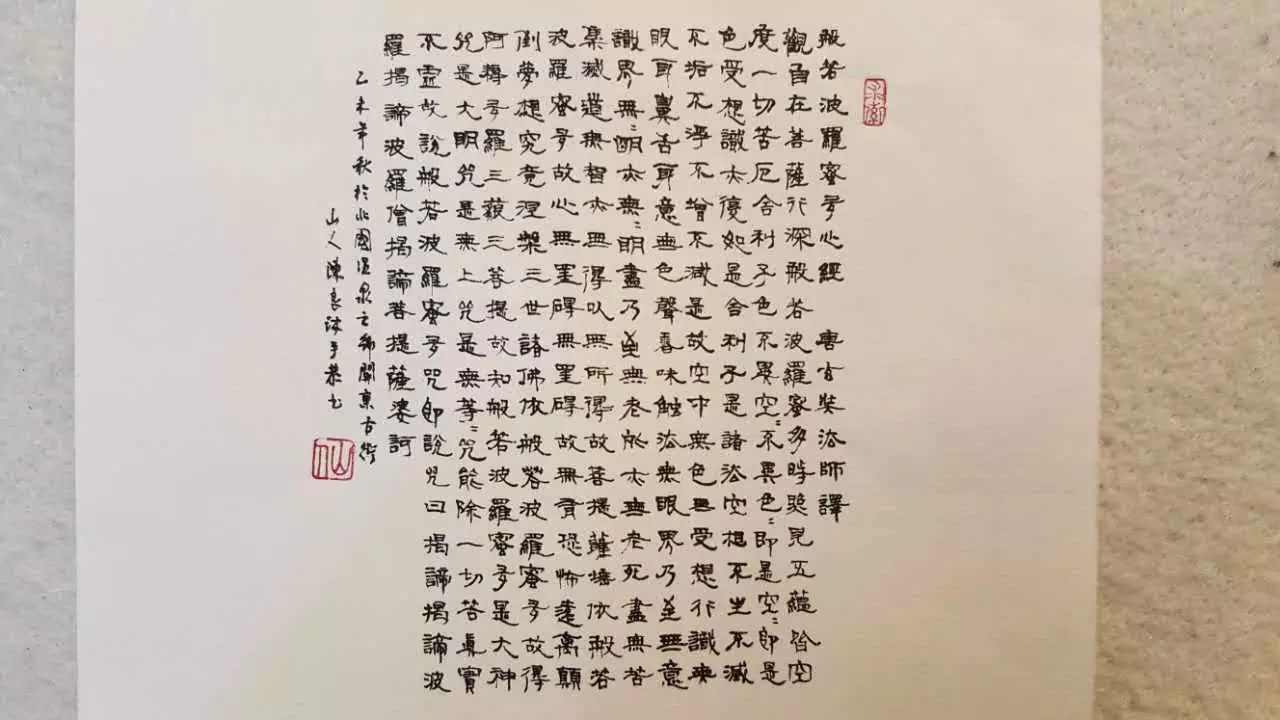 般若波羅蜜多心經 唐玄奘法師譯
觀自在菩薩行深般若波羅蜜多時照見五蘊皆空
度一切苦厄舍利子色不異空〻不異色〻即是空〻即是
色受想識亦復如是舍利子是諸法空想不生不滅
不垢不淨不增不減是故空中無色无受想行識無
眼耳鼻舌耳意無色聲香味觸法無眼界乃至無意
識界無〻明亦無〻明盡乃至無老所亦無老死盡無苦
集滅道無智亦無得以無所得故菩提薩埵依般若
波羅蜜多故心無罣碍無罣碍故無有恐怖遠離顛
倒夢想究竟涅槃三世諸佛依般若波羅蜜多故得
阿耨多羅三藐三菩提故知般若波羅蜜多是大神
咒是大明咒是無上咒是無等〻咒能除一切苦真實
不虛故說般若波羅蜜多咒即說咒曰揭諦揭諦波
羅揭諦波羅僧揭諦菩提薩婆訶
乙未年秋於北國温泉之鄉開東古街
山人陳良沐手恭书